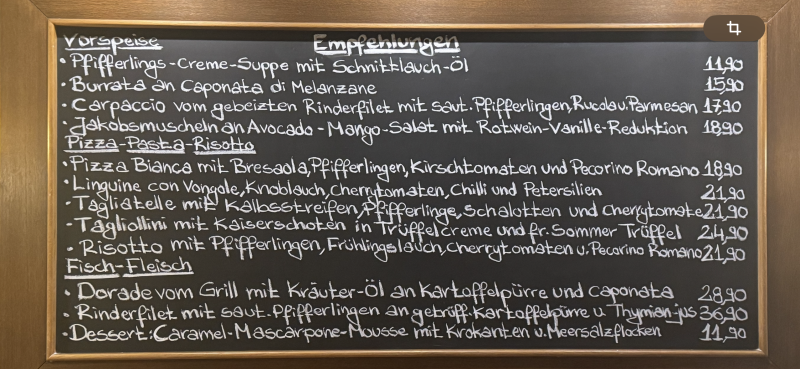 Vorspeise Empfehlungen
• Pfifferlings-Creme-Suppe mit Schnittlauch-Öl 11,90
• Burrata an Caponata di Melanzane 15,90
• Carpaccio vom gebeizten Rinderfilet mit saut. Pfifferlingen, Rucola u. Parmesan 17,90
• Jakobsmuscheln an Avocado-Mango-Salat mit Rotwein-Vanille-Reduktion 18,90
Pizza-Pasta-Risotto
• Pizza Bianca mit Bresaola, Pfifferlingen, Kirschtomaten und Pecorino Romano 18,90
• Linguine con Vongole, Knoblauch, cherrytomaten, Chilli und Petersilien 21,90
• Tagliatelle mit Kalbsstreifen, Pfifferlinge, Schalotten und cherrytomate 21,90
• Tagliollini mit Kaiserschoten in Trüffelcreme und fr. Sommer Trüffel 24,90
• Risotto mit Pfifferlingen, Frühlingslauch, cherrytomaten u. Pecorino Romano 21,90
Fisch-Fleisch
• Dorade vom Grill mit Kräuter-Öl an Kartoffelpürre und Caponata 28,90
• Rinderfilet mit saut. Pfifferlingen an getrüff. Kartoffelpürre u. Thymian-jus 36,90
• Dessert: Caramel-Mascarpone-Mousse mit Krokanten u. Meersalzflocken 11,90